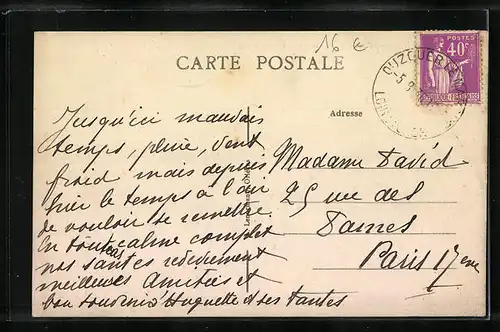 16 €
CARTE POSTALE
Adresse
POSTES
40c
OUZOUER
5
LOIRET
Jusqu'ici mauvais
temps, pluie, vent
froid mais depuis
hier le temps a l'air
de vouloir se remettre
En tout cas calme complet
nos santés redeviennent
meilleures Amitiés et
bon souvenir d'Huguette et ses tantes
Madame David
25 rue des
Dames
Paris 17 eme